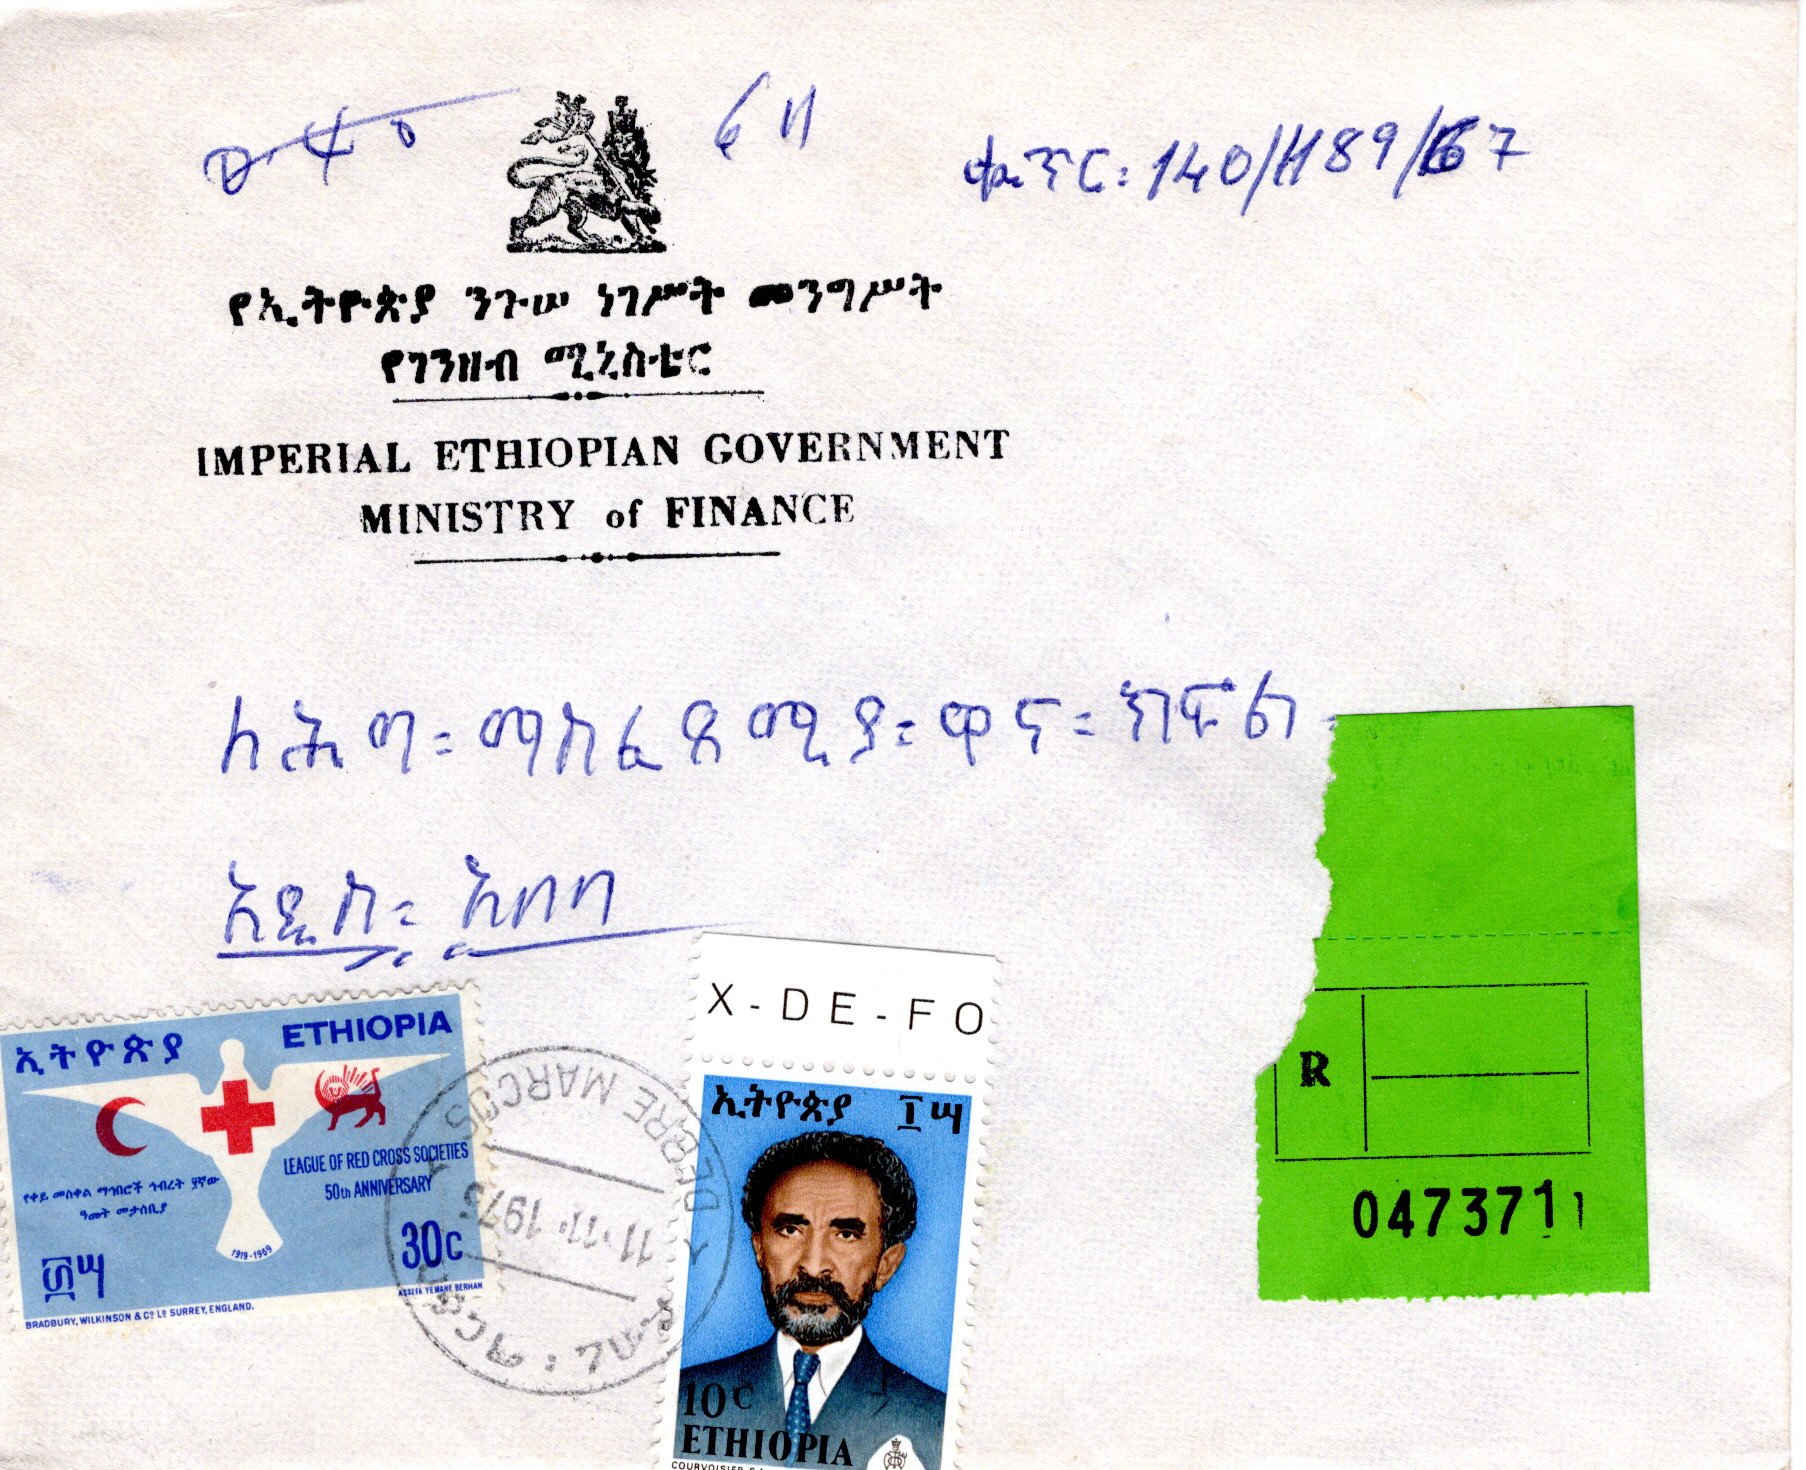 ቁጥር፡ 140/H89/67
የኢትዮጵያ ንጉሠ ነገሥት መንግሥት
የገንዘብ ሚኒስቴር
IMPERIAL ETHIOPIAN GOVERNMENT
MINISTRY of FINANCE
ለሕግ፡ ማስፈጸሚያ፡ ዋና፡ ክፍል፡
አዲስ፡ አበባ
ኢትዮጵያ ETHIOPIA
LEAGUE OF RED CROSS SOCIETIES
50th ANNIVERSARY
የቀይ መስቀል ማኅበሮች ኅብረት ፶ኛው
ዓመት መታሰቢያ
1919-1969
፴ሣ 30c
ASSEFA YEMANE BERHAN
BRADBURY, WILKINSON & Co. Ld SURREY, ENGLAND.
DEBRE MARCOS
1975
ማርቆስ
X-DE-FO
ኢትዮጵያ ፲ሣ
10c
ETHIOPIA
COURVOISIER
R
047371